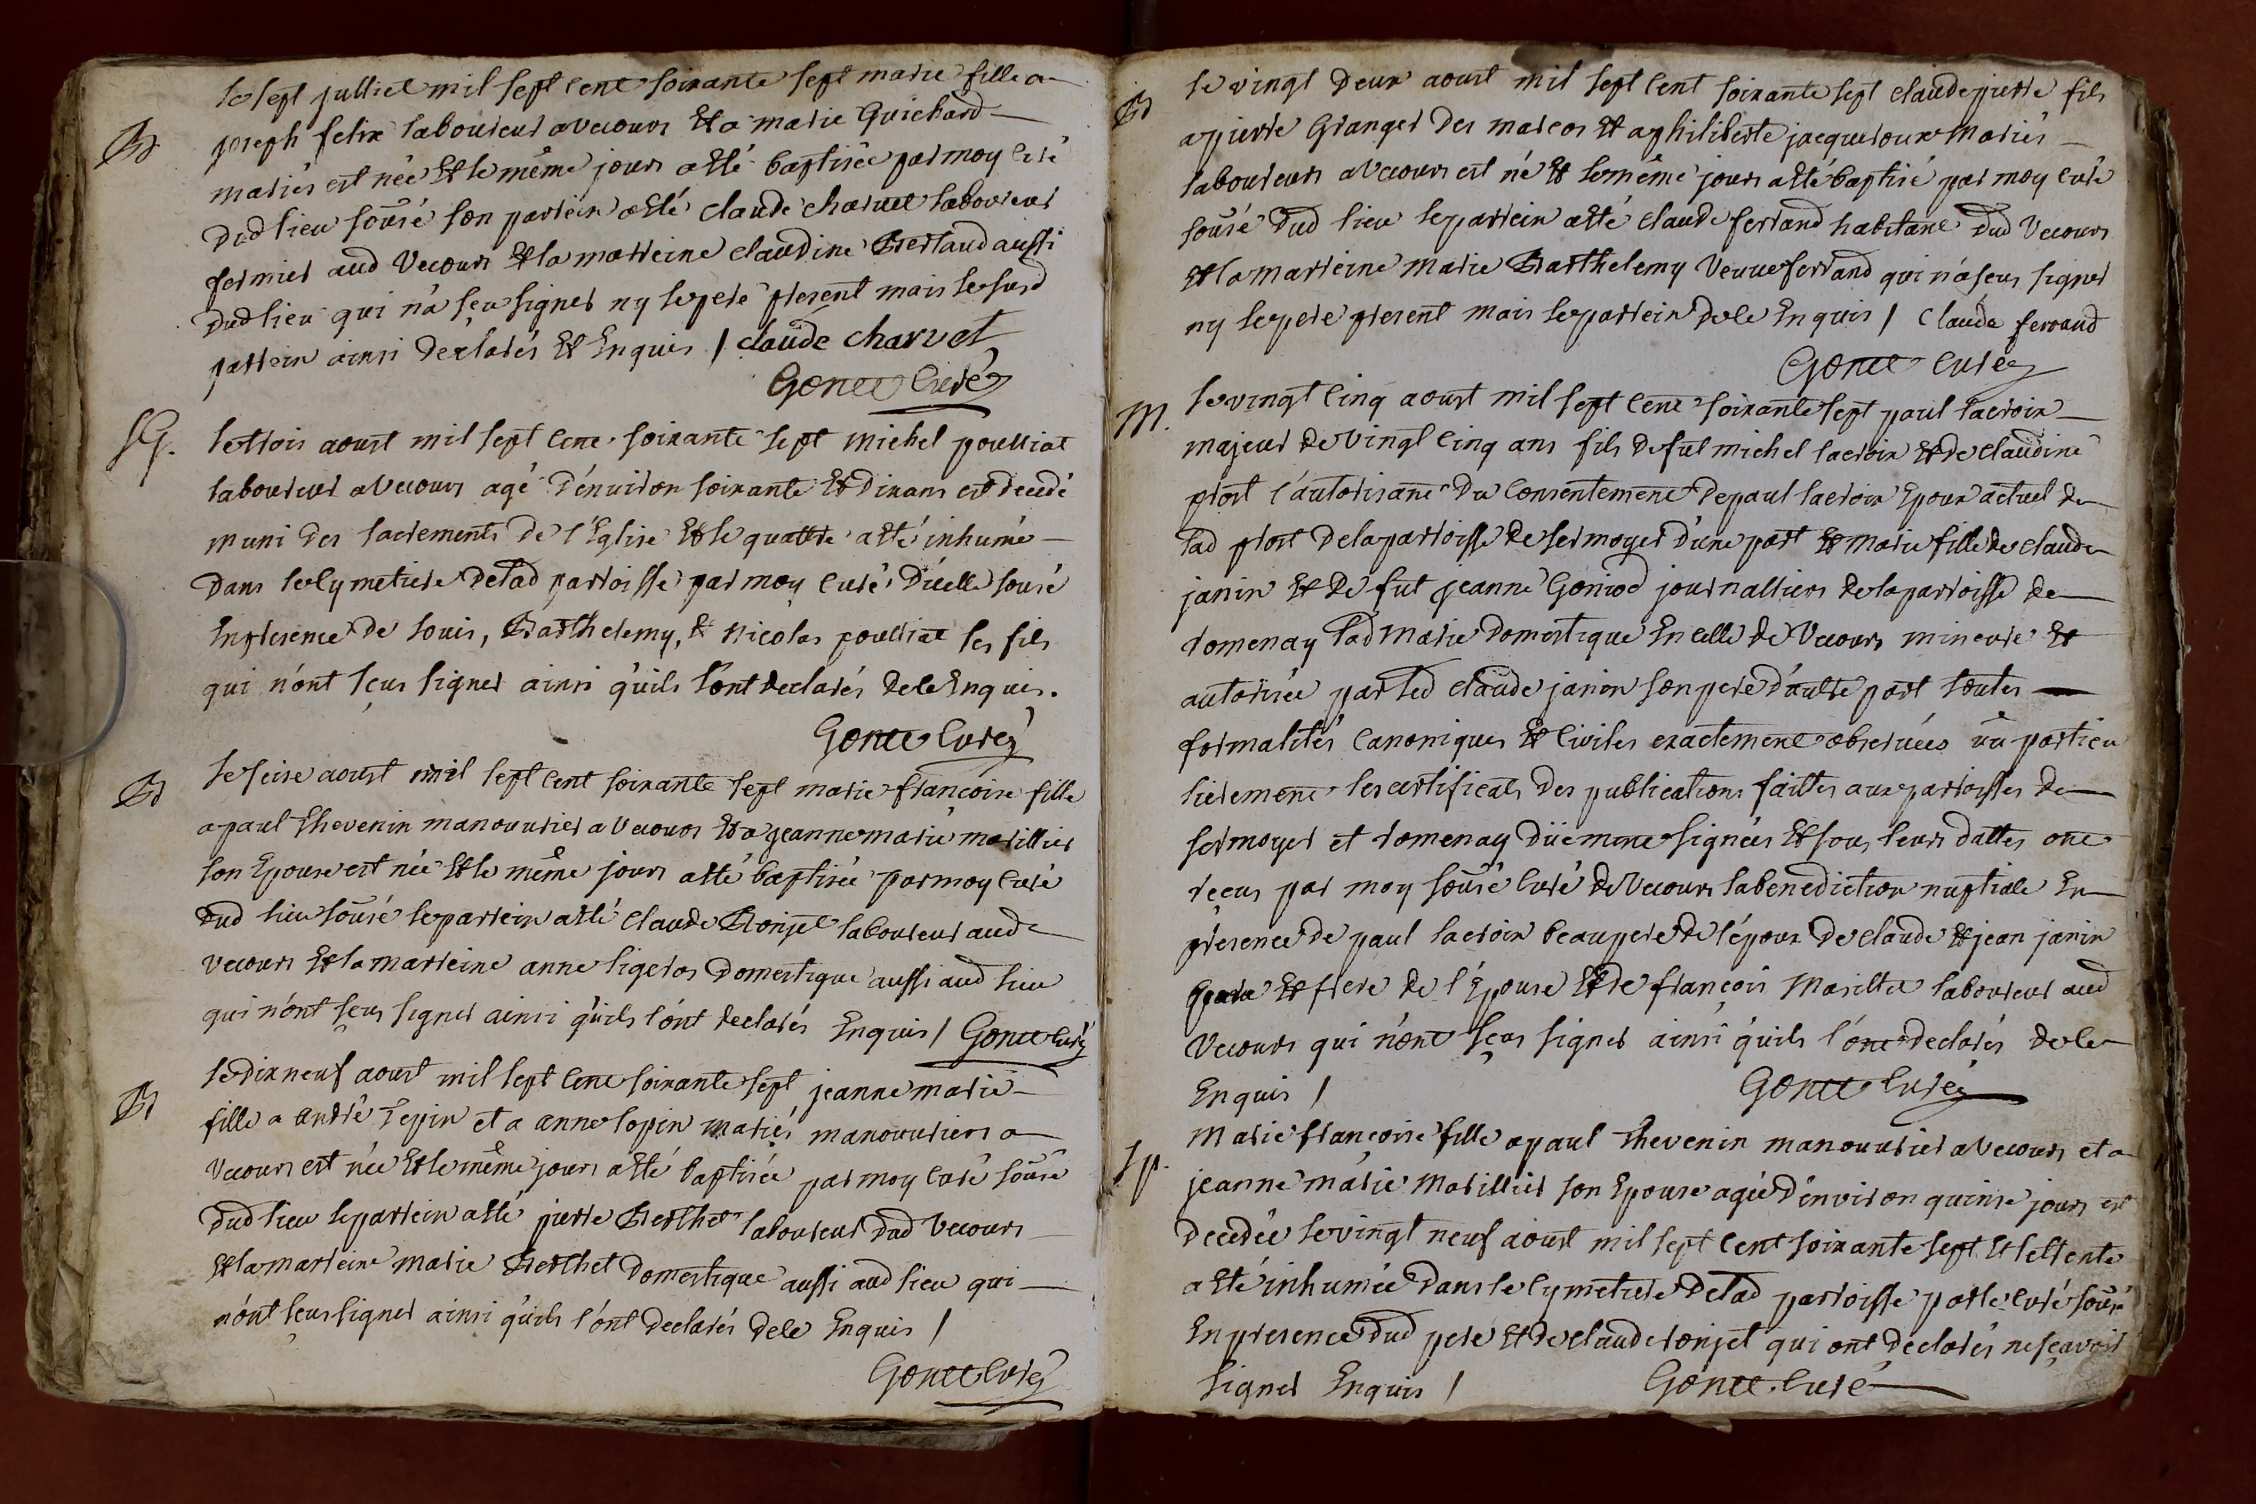 Bd
le sept julliet mil sept cent soixante sept marie fille a
joseph felix laboureur a vecours et a marie Guichard
mariés est née et le même jours a été baptisée par moy curé
dud lieu sousé son parrein a été claude charvet laboureur
fermier aud Vecours et la marreine claudine Bertaud aussi
dud lieu qui n'a sçu signer ny le pere present mais le susd
parrein ainsi declarés et Enquis / claude charvet
Gonce curé
SG.
le trois aoust mil sept cent soixante sept michel poulliat
laboureur a Vecours agé d'environ soixante et dix ans est decedé
muni des sacrements de l'Eglise et le quattre a été inhumé
dans le cymetiere de lad parroisse par moy curé d'icelle sousé
En presence de louis, Barthelemy, & nicolas poulliat ses fils
qui n'ont sçus signer ainsi qu'ils l'ont declarés de ce Enquis.
Gonce curé
Bd
le seize aoust mil sept cent soixante sept marie françoise fille
a paul thevenin manouvrier a Vecours et a jeanne marie marillier
son Epouse est née et le même jours a été baptisée par moy curé
dud lieu sousé le parrein a été claude Bonjet laboureur aud
vecours et la marreine anne ligeros domestique aussi aud lieu
qui n'ont sçus signer ainsi qu'ils l'ont declarés Enquis / Gonce curé
Bd
le dix neuf aoust mil sept cent soixante sept jeanne marie
fille a andré Tepin et a anne lopin mariés manouvriers a
Vecours est née et le même jours a été baptisée par moy curé sousé
dud lieu le parrein a été pierre Berthet laboureur dud Vecours
et la marreine marie Berthet domestique aussi aud lieu qui
n'ont sçus signer ainsi qu'ils l'ont declarés de ce Enquis /
Gonce curé
Bd
le vingt deux aoust mil sept cent soixante sept claude pierre fils
a pierre Granger des marcos et a philiberte jacqueroux mariés
laboureurs a Vecours est né et le même jours a été baptisé par moy curé
sousé dud lieu le parrein a été claude ferrand habitant dud Vecours
et la marreine marie Barthelemy Veuve ferrand qui n'a sçus signer
ny le pere present mais le parrein de ce Enquis / Claude ferrand
Gonce curé
M.
le vingt cinq aoust mil sept cent soixante sept paul lacroix
majeur de vingt cinq ans fils de fut michel lacroix et de claudine
prost l'autorisant du consentement de paul lacroix Epoux actuel de
lad prost de la parroisse de sermoyer d'une part et marie fille de claude
janin et de fut jeanne Goniod journalliers de la parroisse de
romenay lad marie domestique En celle de Vecours mineure et
autorisée par led claude janin son pere d'autre part toutes
formalités canoniques et civiles exactement observées vû particu
lierement les certificats des publications faittes aux parroisses de
sermoyer et romenay düement signées et sous leurs dattes ont
reçus par moy sousé curé de Vecours la benediction nuptiale En
presence de paul lacroix beaupere de l'époux de claude et jean janin
et frere de l'Epouse et de françois marillier laboureur aud
Vecours qui n'ont sçus signer ainsi qu'ils l'ont declarés de ce
Enquis / Gonce curé
sp.
marie françoise fille a paul thevenin manouvrier a Vecours et a
jeanne marie marillier son Epouse agée d'environ quinze jours est
decedée le vingt neuf aoust mil sept cent soixante sept et le trente
a été inhumée dans le cymetiere de lad parroisse par le curé sousé
En presence dud pere et de claude ronjet qui ont declarés ne sçavoir
signer Enquis / Gonce curé